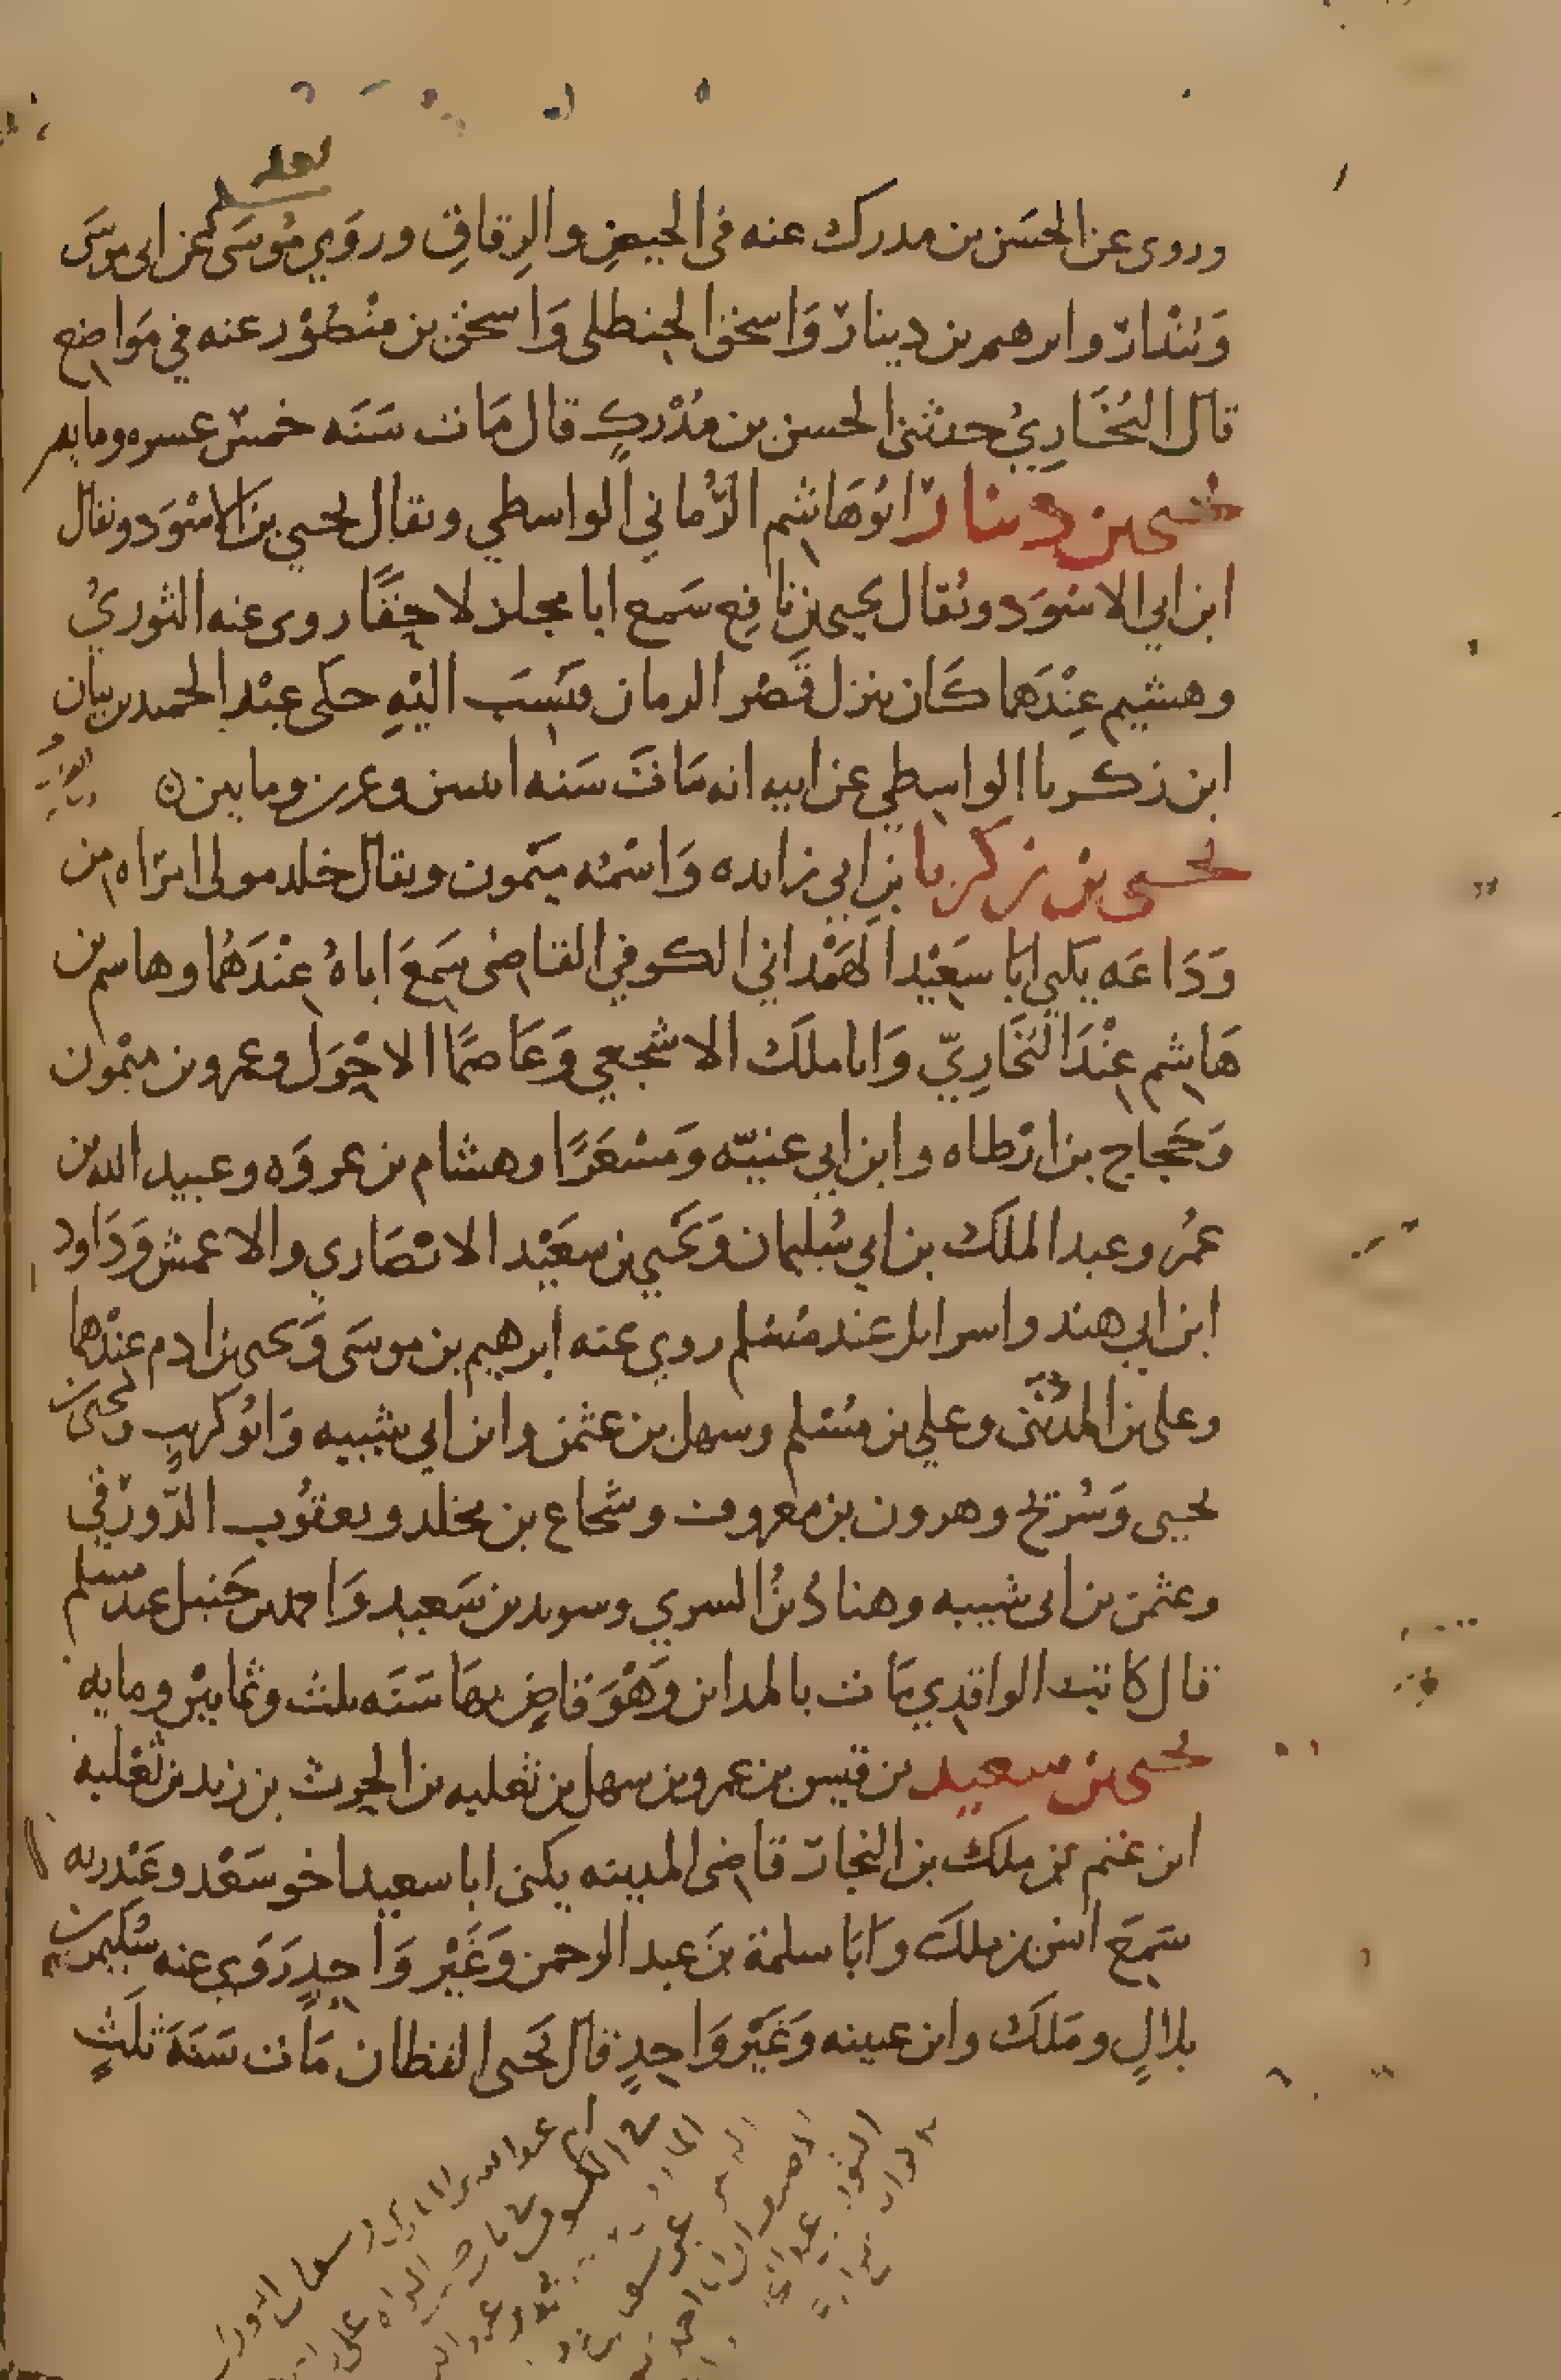 وروى عن الحسَن بن مدرك عنه في الحيضِ والرِقاقِ وروَي مُوسَى عن ابى موسَى
وَبُنْدارٌ وابرهيم بن دينارٌ وَاسحٰق الحنظلى وَاسحٰق بن منْصُوْر عنه في مَوَاضع
قال البُخَارِيُ حدثنى الحسن بن مُدْركٍ قال مَات سَنَه خمسَ عسره ومايه
يحيى بن دينارٌ ابُو هَاشِم الرُّمانِي الواسطي ويقال يحيي بن الاسْوَد ويقال
ابن ابي الاسْوَد ويُقال يحيى بن نافِع سَمع ابا مجلز لاحِقًا روى عنه الثوريُ
وهشيم عِنْدَهما كَان ينزل قَصْر الرمان فنُسِبَ اليْهِ حكى عبْد الحميد بن بيان
ابن زكريا الواسِطي عن ابيه انه مَاتَ سَنه اثنين وعرين ومايين
يحيى بن زكريا بن ابي زايده وَاسْمُه ميْمون ويقال خلد مولى امرَاه من
وَدَاعَه يكني ابَا سعَيْد الهَمْداني الكوفي القاضى سَمعَ اباهُ عِنْدَهُما وهاسم بن
هَاشِم عِنْدَ البُخَارِيّ وَابا ملَك الاشجعي وَعَاصمًا الاحْوَل وعمرو بن ميْمون
وَحَجاج بن ارْطاه وابن ابي غنيّه ومَسْعَرًا وهشام بن عروَه وعبيد الله بن
عمُر وعبد الملَك بن ابي سُليمان وَيحَيي بن سعَيْد الانْصَاري والاعمش وَدَاود
ابن ابي هند واسرايل عند مسْلم روي عنه ابرهيم بن موسَى وَيحيى بن ادم عنْدهما
وعلى بن المدينى وعلي بن مسْلم وسهل بن عثمٰن وابن ابي شيبه وَابُو كريبٍ ويحيى بن
يحيى وَسُرَيْج وهرون بن معروف وشجاع بن مخلد ويعقُوب الدَّورْقي
وعثمٰن بن ابى شيبه وهنادُ بنُ السري وسويد بن سَعيد وَاحمد بن حَنبل عند مسلم
قال كاتب الواقدِي مَات بالمداين وَهْوَ قاضٍ بهَا سَنَه ثلث وثمانيْن ومايه
يحيى بن سعيد بن قيس بن عمرو بن سهل بن ثعلبه بن الحرث بن زيد بن ثعْلبه
ابن غنم بن ملَك بن النجارٌ قاضى المدينه يكنى ابا سعيد اخو سَعْد وعَبْد ربه
سَمِعَ انس بن ملَك وَابَا سلمة بنَ عبد الرحمن وَغَيْر وَاحِدٍ رَوَي عنه سُليمن بن
بلالٍ ومَلَك وابن عيينه وَغَيْر وَاحِدٍ قال يَحيى القطان مَات سَنَةَ ثلَثٍ